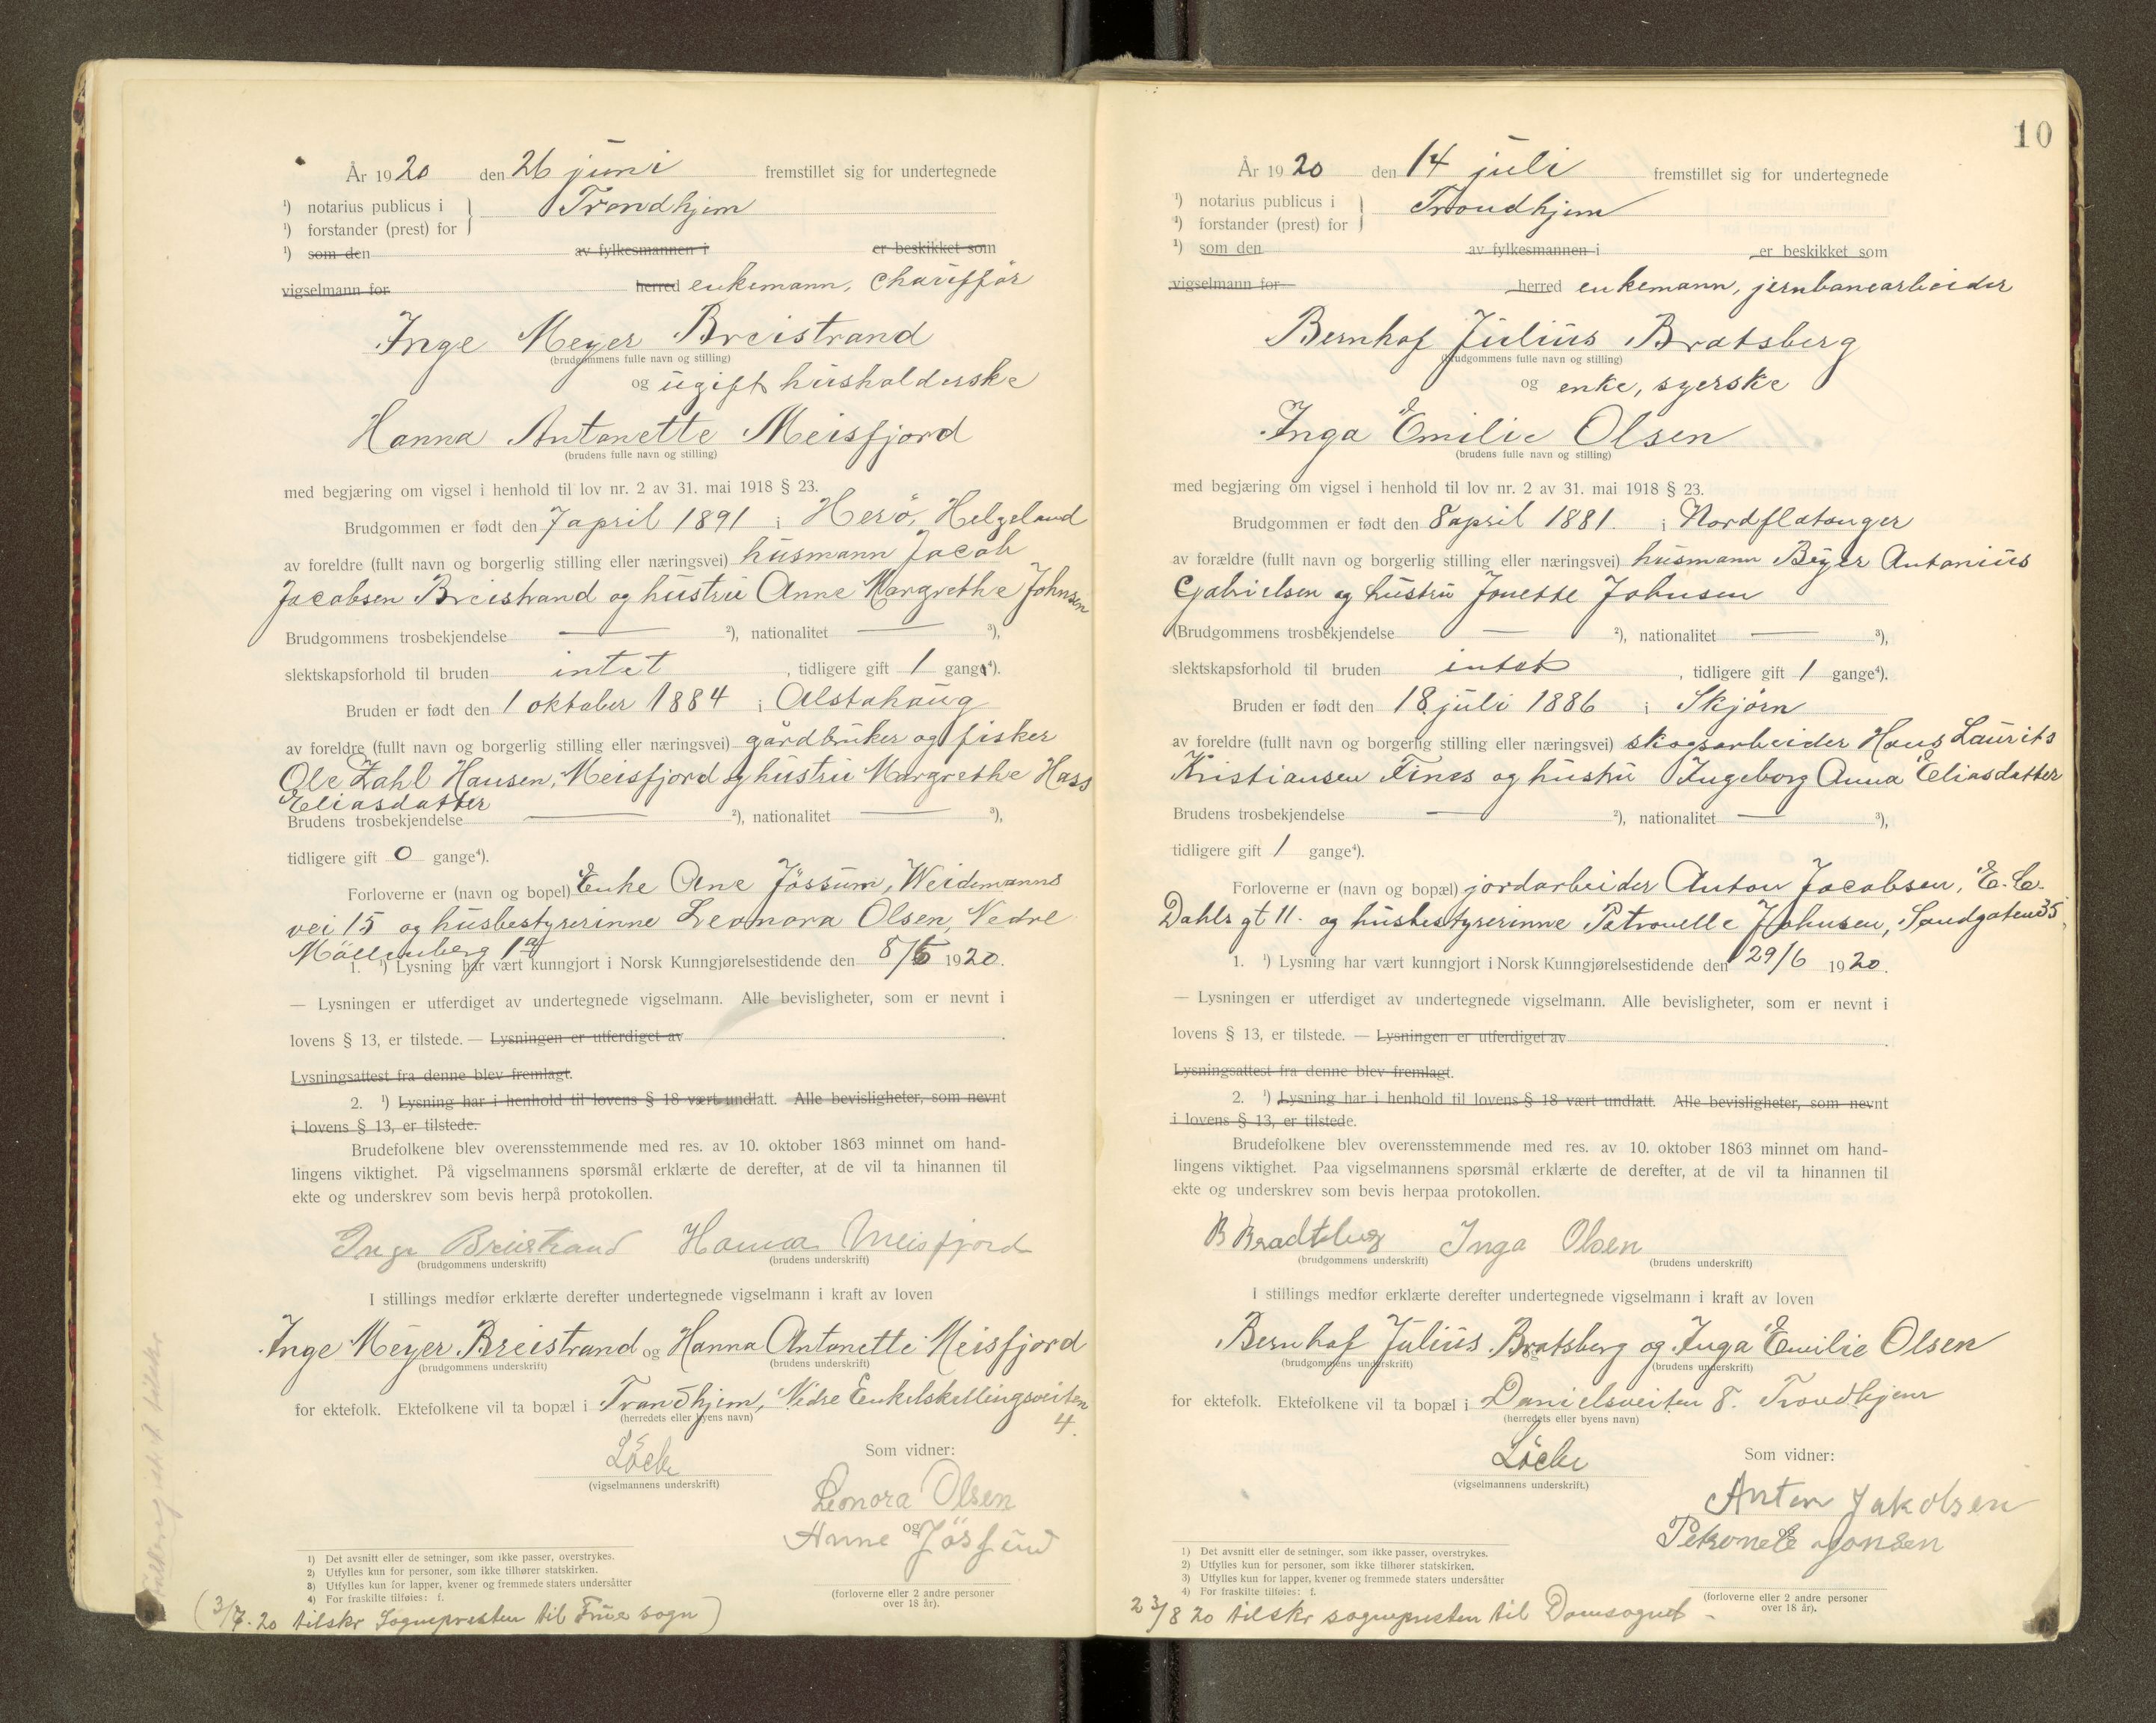 År 1920 den 26 juni fremstillet sig for undertegnede
¹) notarius publicus i } Trondhjem
¹) forstander (prest) for
¹) som den av fylkesmannen i er beskikket som
vigselmann for herred enkemann, chauffør
Inge Meyer Breistrand
(brudgommens fulle navn og stilling)
og ugift husholderske
Hanna Antonette Meisfjord
(brudens fulle navn og stilling)
med begjæring om vigsel i henhold til lov nr. 2 av 31. mai 1918 § 23.
Brudgommen er født den 7 april 1891 i Herö, Helgeland
av foreldre (fullt navn og borgerlig stilling eller næringsvei) husmann Jacob
Jacobsen Breistrand og hustru Anne Margrethe Johnsen
Brudgommens trosbekjendelse — ²), nationalitet — ³),
slektskapsforhold til bruden intet , tidligere gift 1 gang⁴).
Bruden er født den 1 oktober 1884 i Alstahaug
av foreldre (fullt navn og borgerlig stilling eller næringsvei) gårdbruker og fisker
Ole Zahl Hansen, Meisfjord og hustru Margrethe Hass
Eliasdatter
Brudens trosbekjendelse — ²), nationalitet — ³),
tidligere gift 0 gange⁴).
Forloverne er (navn og bopel) Enke Ane Jössum, Weidemanns
vei 15 og husbestyrerinne Leonora Olsen, Nedre
Möllenberg 1a
1. ¹) Lysning har vært kunngjort i Norsk Kunngjørelsestidende den 8/6 1920.
— Lysningen er utferdiget av undertegnede vigselmann. Alle bevisligheter, som er nevnt i
lovens § 13, er tilstede. — Lysningen er utferdiget av
Lysningsattest fra denne blev fremlagt.
2. ¹) Lysning har i henhold til lovens § 18 vært undlatt. Alle bevisligheter, som nevnt
i lovens § 13, er tilstede.
Brudefolkene blev overensstemmende med res. av 10. oktober 1863 minnet om hand-
lingens viktighet. På vigselmannens spørsmål erklærte de derefter, at de vil ta hinannen til
ekte og underskrev som bevis herpå protokollen.
Inge Breistrand Hanna Meisfjord
(brudgommens underskrift) (brudens underskrift)
I stillings medfør erklærte derefter undertegnede vigselmann i kraft av loven
Inge Meyer Breistrand og Hanna Antonette Meisfjord
(brudgommens underskrift) (brudens underskrift)
for ektefolk. Ektefolkene vil ta bopæl i Trondhjem, Nedre Enkelskillingsveiten
(herredets eller byens navn) 4.
Löcke Som vidner:
(vigselmannens underskrift)
Leonora Olsen
og
Anne Jössund
(forloverne eller 2 andre personer
over 18 år).
1) Det avsnitt eller de setninger, som ikke passer, overstrykes.
2) Utfylles kun for personer, som ikke tilhører statskirken.
3) Utfylles kun for lapper, kvener og fremmede staters undersåtter
4) For fraskilte tilføies: f.
(3/7.20 tilskr Sognepresten til Frue sogn)
10
År 1920 den 14 juli fremstillet sig for undertegnede
¹) notarius publicus i } Trondhjem
¹) forstander (prest) for
¹) som den av fylkesmannen i er beskikket som
vigselmann for herred enkemann, jernbanearbeider
Bernhof Julius Bratsberg
(brudgommens fulle navn og stilling)
og enke, syerske
Inga Emilie Olsen
(brudens fulle navn og stilling)
med begjæring om vigsel i henhold til lov nr. 2 av 31. mai 1918 § 23.
Brudgommen er født den 8 april 1881. i Nordflatanger
av forældre (fullt navn og borgerlig stilling eller næringsvei) husmann Beyer Antonius
Gabrielsen og hustru Jonette Johnsen
Brudgommens trosbekjendelse — ²), nationalitet — ³),
slektskapsforhold til bruden intet , tidligere gift 1 gange⁴).
Bruden er født den 18 juli 1886 i Skjörn
av foreldre (fullt navn og borgerlig stilling eller næringsvei) skogsarbeider Hans Laurits
Kristiansen Fines og hustru Ingeborg Anna Eliasdatter
Brudens trosbekjendelse — ²), nationalitet — ³),
tidligere gift 1 gange⁴).
Forloverne er (navn og bopæl) jordarbeider Anton Jacobsen, E. C.
Dahls gt 11. og husbestyrerinne Petronelle Johnsen, Sandgaten 35,
1. ¹) Lysning har vært kunngjort i Norsk Kunngjørelsestidende den 29/6 1920.
— Lysningen er utferdiget av undertegnede vigselmann. Alle bevisligheter, som er nevnt i
lovens § 13, er tilstede. — Lysningen er utferdiget av
Lysningsattest fra denne blev fremlagt.
2. ¹) Lysning har i henhold til lovens § 18 vært undlatt. Alle bevisligheter, som nevnt
i lovens § 13, er tilstede.
Brudefolkene blev overensstemmende med res. av 10. oktober 1863 minnet om hand-
lingens viktighet. Paa vigselmannens spørsmål erklærte de derefter, at de vil ta hinannen til
ekte og underskrev som bevis herpaa protokollen.
B Bradtsberg Inga Olsen
(brudgommens underskrift) (brudens underskrift)
I stillings medfør erklærte derefter undertegnede vigselmann i kraft av loven
Bernhof Julius Bratsberg og Inga Emilie Olsen
(brudgommens underskrift) (brudens underskrift)
for ektefolk. Ektefolkene vil ta bopæl i Danielsveiten 8. Trondhjem
(herredets eller byens navn)
Löcke Som vidner:
(vigselmannens underskrift.)
Anton Jakobsen
og
Petronele Jonsen
(forloverne eller 2 andre personer
over 18 år).
1) Det avsnitt eller de setninger, som ikke passer, overstrykes.
2) Utfylles kun for personer, som ikke tilhører statskirken.
3) Utfylles kun for lapper, kvener og fremmede staters undersåtter
4) For fraskilte tilføies: f.
23/8 20 tilskr sognepresten til Domsognet -